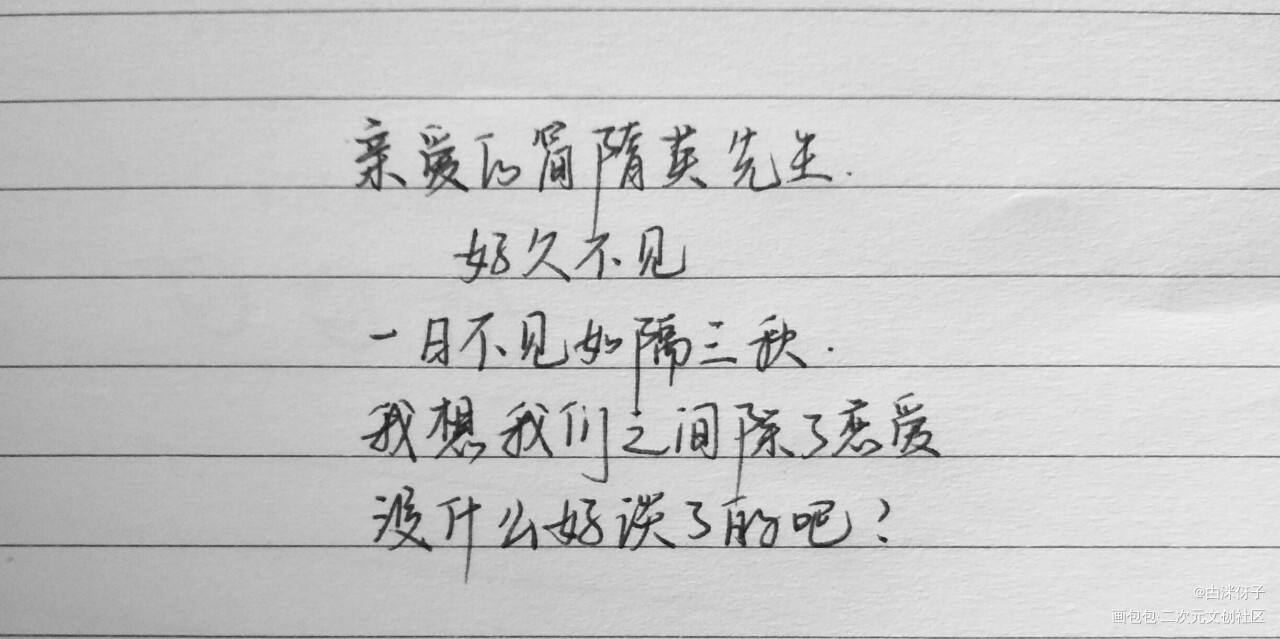 亲爱的简隋英先生.
好久不见
一日不见如隔三秋.
我想我们之间除了恋爱
没什么好谈了的吧?
@由渊伢子
画包包·二次元文创社区